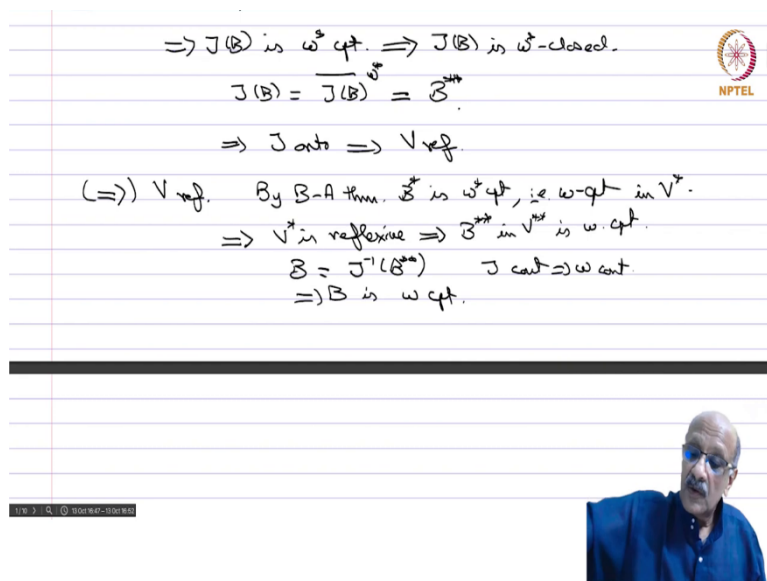 => J(B) is w* cpt. => J(B) is w*-closed.
J(B) = \overline{J(B)}^{w*} = B**.
=> J onto => V ref.
NPTEL
(=>) V ref. By B-A thm. B* is w* cpt, i.e. w-cpt in V*.
=> V* is reflexive => B** in V** is w. cpt.
B = J⁻¹(B**) J cont => w cont
=> B is w cpt.
1/10 13 Oct 16:47 - 13 Oct 16:52